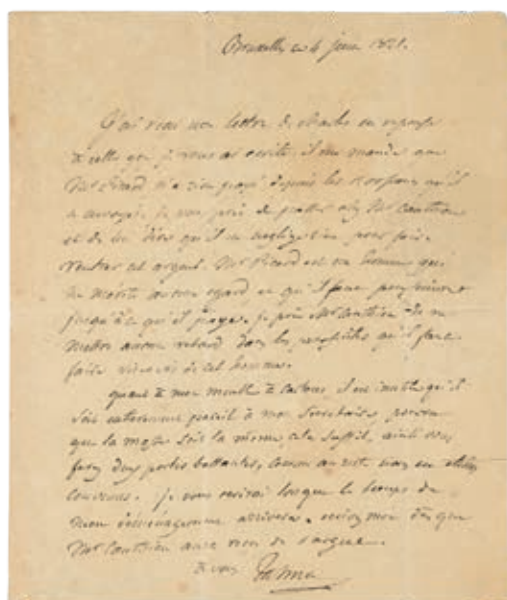 Bruxelles ce 4 juin 1821.
J'ai reçu une lettre de charles en reponse
à celle que je vous ai écrite. il me mande que
Mr Picard n'a rien payé depuis les qu'il
a envoyé. je vous prie de passer chez Mr Gauthier
et de lui dire qu'il ne neglige rien pour faire
rentrer cet argent. Mr Picard est un homme qui
ne merite aucun egard et qu'il faut poursuivre
jusqu'à ce qu'il paye. je prie Mr Gauthier de ne
mettre aucun retard dans les poursuites qu'il faut
faire de cet homme.
quant à mon meuble à cartons, il est inutile qu'il
soit entierement pareil à mon Secretaire, pourvu
que la soit la même cela suffit, ainsi vous
ferez deux portes battantes, comme nous en etions
convenus. je vous ecrirai lorsque le temps de
mon arrivera. ecrivez moi dès que
Mr Gauthier aura recu de l'argent.
à vous Talma